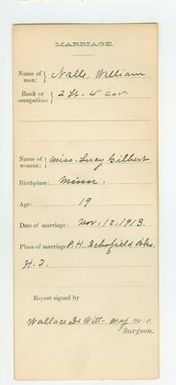 MARRIAGE.
Name of man: } Nalls, William
Rank or occupation: } 2 Lt. 4 Cav.
Name of woman: } Miss. Lucy Gilbert
Birthplace: Minn.
Age: 19
Date of marriage: Nov. 12, 1913.
Place of marriage: P.H. Schofield Bks.
H. T.
Report signed by
Wallace De Witt - Maj. M. C.
Surgeon.